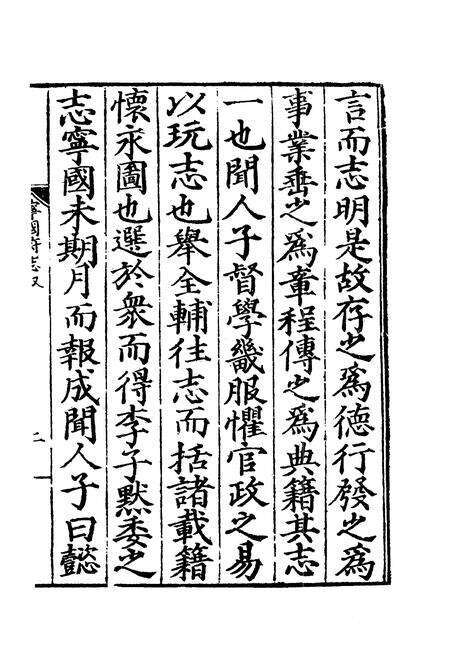 言而志明是故存之爲德行發之爲
事業垂之爲章程傳之爲典籍其志
一也聞人子督學畿服懼官政之易
以玩志也舉全輔往志而括諸載籍
懷永圖也選於衆而得李子默委之
志寧國未期月而報成聞人子曰懿
寧國府志叙
二